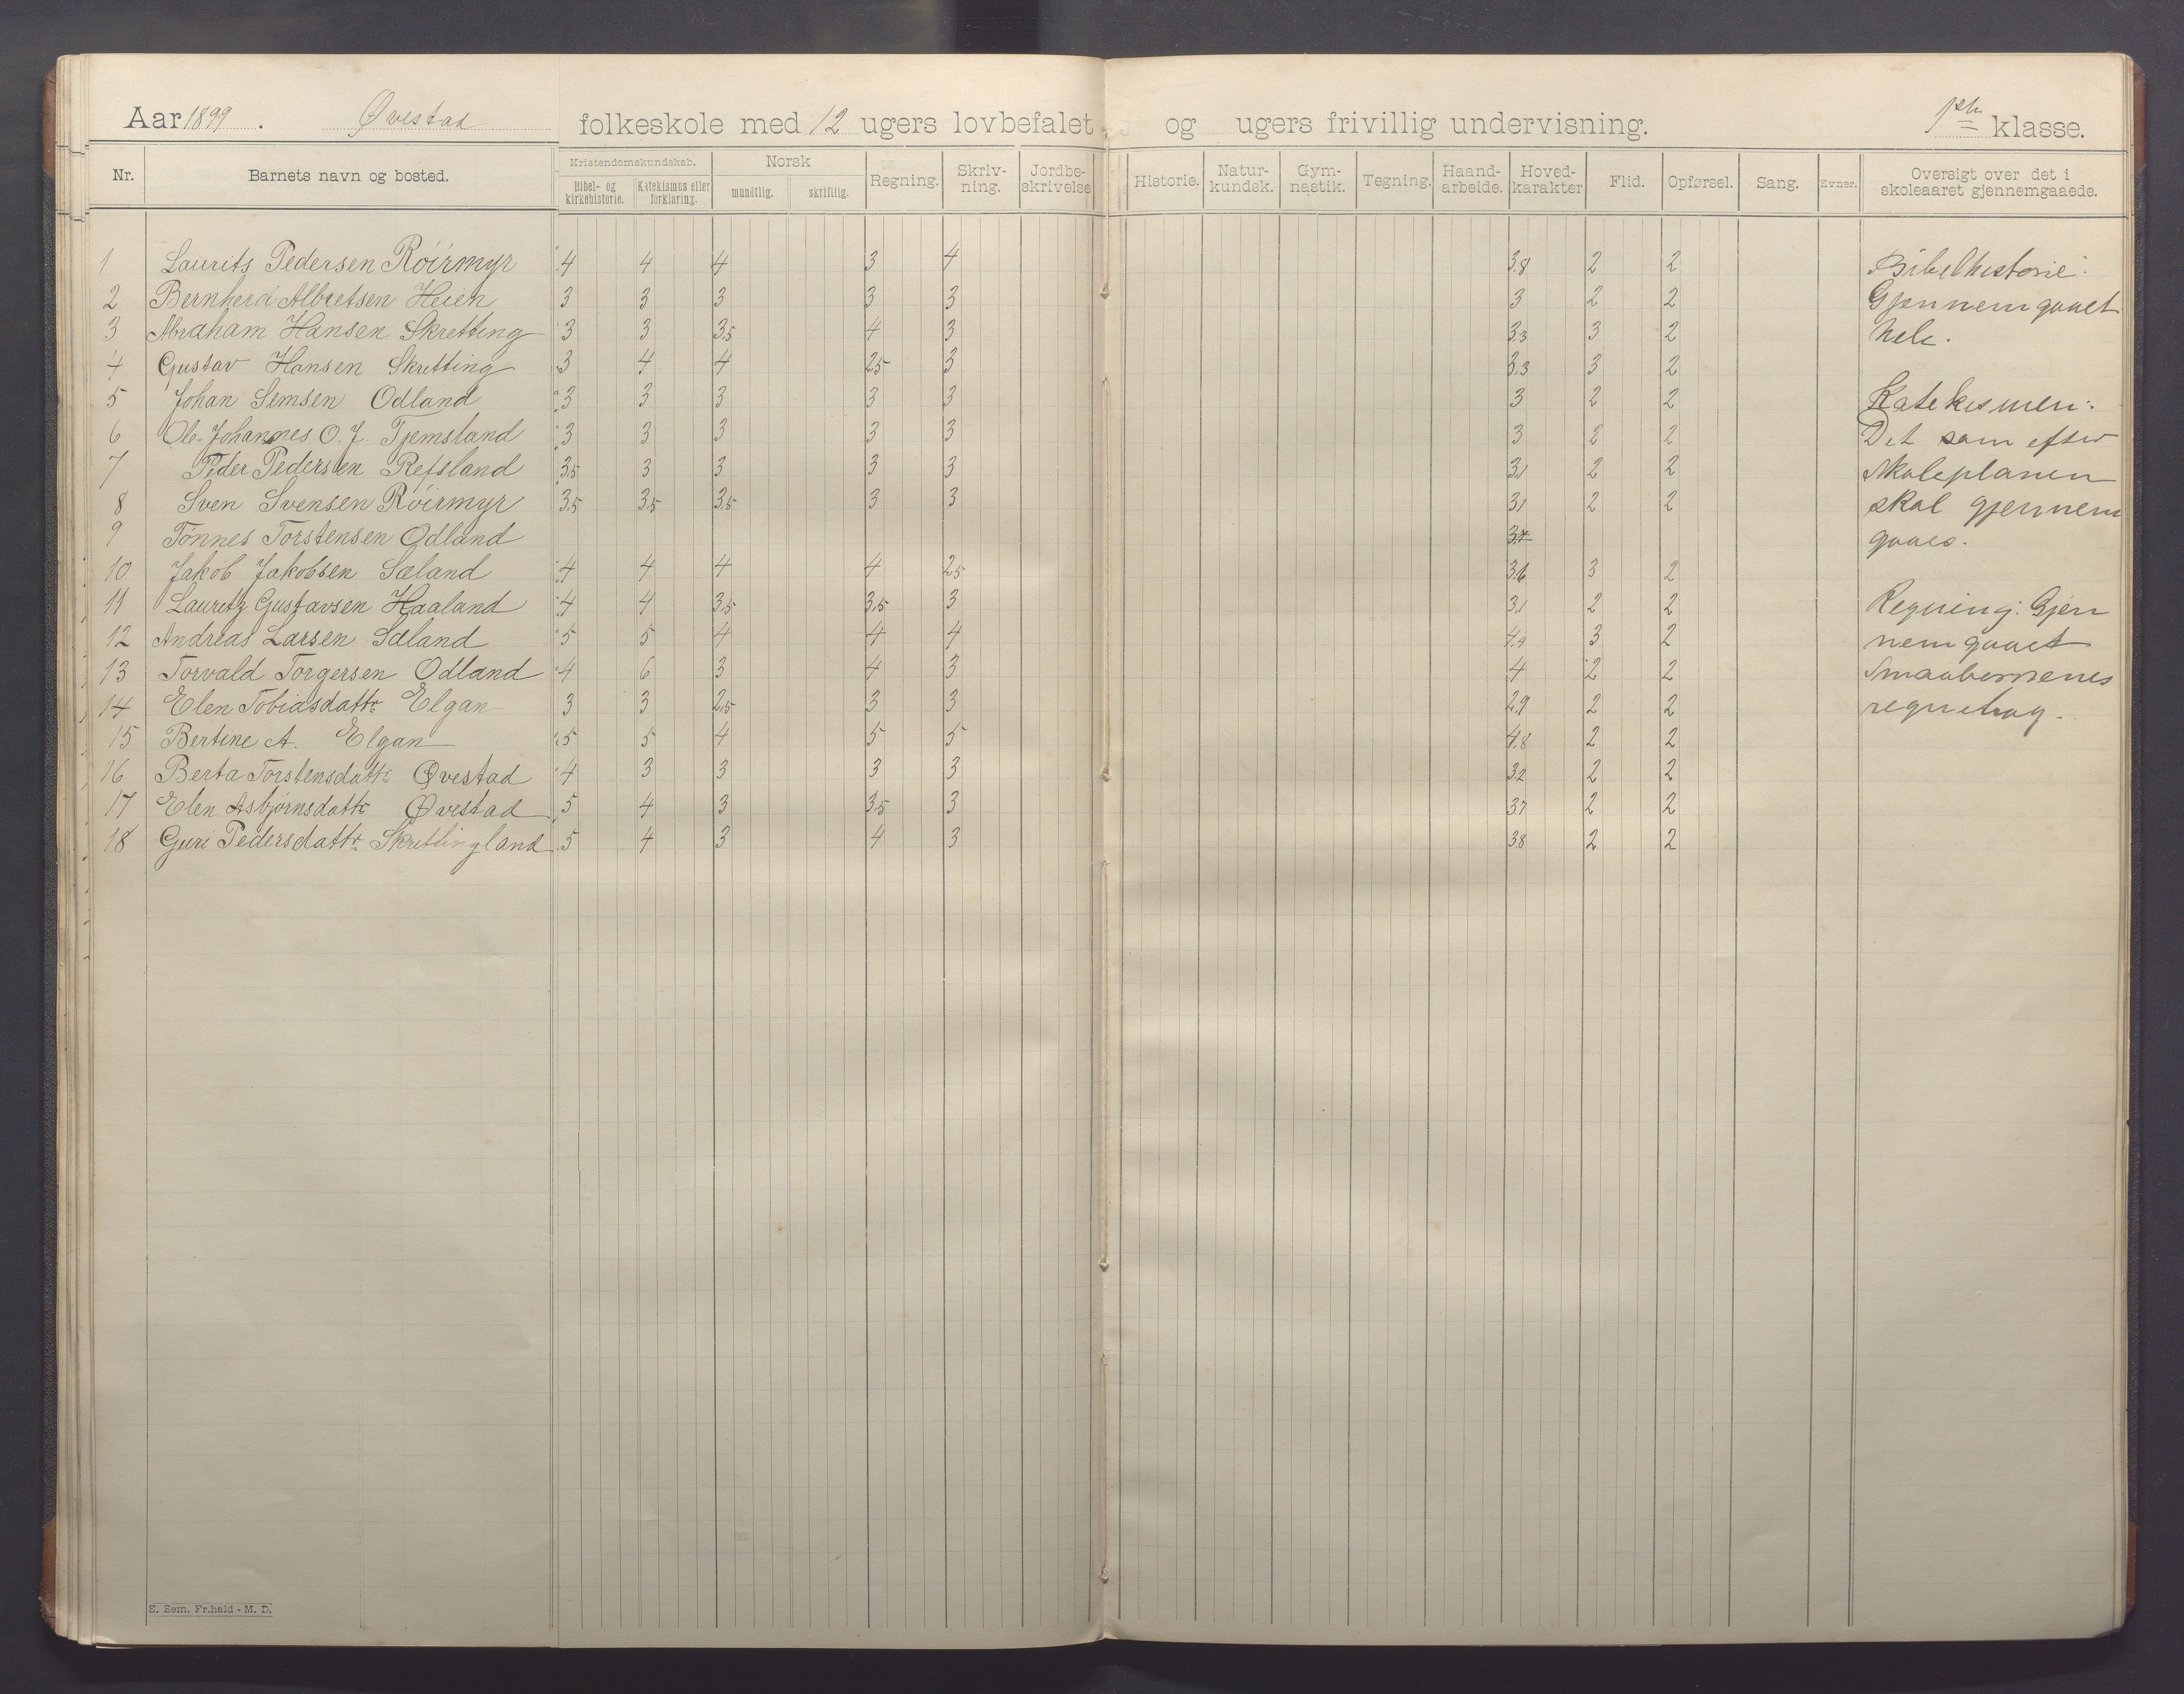 Aar 1899. Øvestad folkeskole med 12 ugers lovbefalet og ugers frivillig undervisning. 1ste klasse.
Nr. Barnets navn og bosted. Kristendomskundskab. Bibel- og kirkehistorie. Katekismus eller forklaring. Norsk mundtlig. skriftlig. Regning. Skriv-ning. Jordbe-skrivelse Historie. Natur-kundsk. Gym-nastik. Tegning. Haand-arbeide. Hoved-karakter Flid. Opførsel. Sang. Evner. Oversigt over det i skoleaaret gjennemgaaede.
1 Laurits Pedersen Röirmyr 4 4 4 3 4 3.8 2 2 Bibelhistorie:
2 Bernherd Albretsen Heien 3 3 3 3 3 3 2 2 Gjennemgaaet
3 Abraham Hansen Skretting 3 3 3.5 4 3 3.3 3 2 hele.
4 Gustav Hansen Skretting 3 4 4 2.5 3 3.3 3 2
5 Johan Semsen Odland 3 3 3 3 3 3 2 2 Katekismen:
6 Ole Johannes O. J. Tjemsland 3 3 3 3 3 3 2 2 Det som efter
7 Peder Pedersen Refsland 3.5 3 3 3 3 3.1 2 2 Skoleplanen
8 Sven Svensen Röirmyr 3.5 3.5 3.5 3 3 3.1 2 2 skal gjennem
9 Tönnes Torstensen Odland gaaes.
10 Jakob Jakobsen Sæland 4 4 4 4 2.5 3.6 3 2
11 Lauretz Gustavsen Haaland 4 4 3.5 3.5 3 3.1 2 2 Regning: Gjen
12 Andreas Larsen Sæland 5 5 4 4 4 4.4 3 2 nemgaaet
13 Torvald Torgersen Odland 4 6 3 4 3 4 2 2 Smaabørnenes
14 Elen Tobiasdattr Elgan 3 3 2.5 3 3 2.9 2 2 regnebog.
15 Bertine A. Elgan 5 5 4 5 5 4.8 2 2
16 Berta Torstensdattr Øvestad 4 3 3 3 3 3.2 2 2
17 Elen Asbjørnsdattr Øvestad 5 4 3 3.5 3 3.7 2 2
18 Guri Pedersdattr Skretlingland 5 4 3 4 3 3.8 2 2
E. Sem, Fr.hald - M. D.